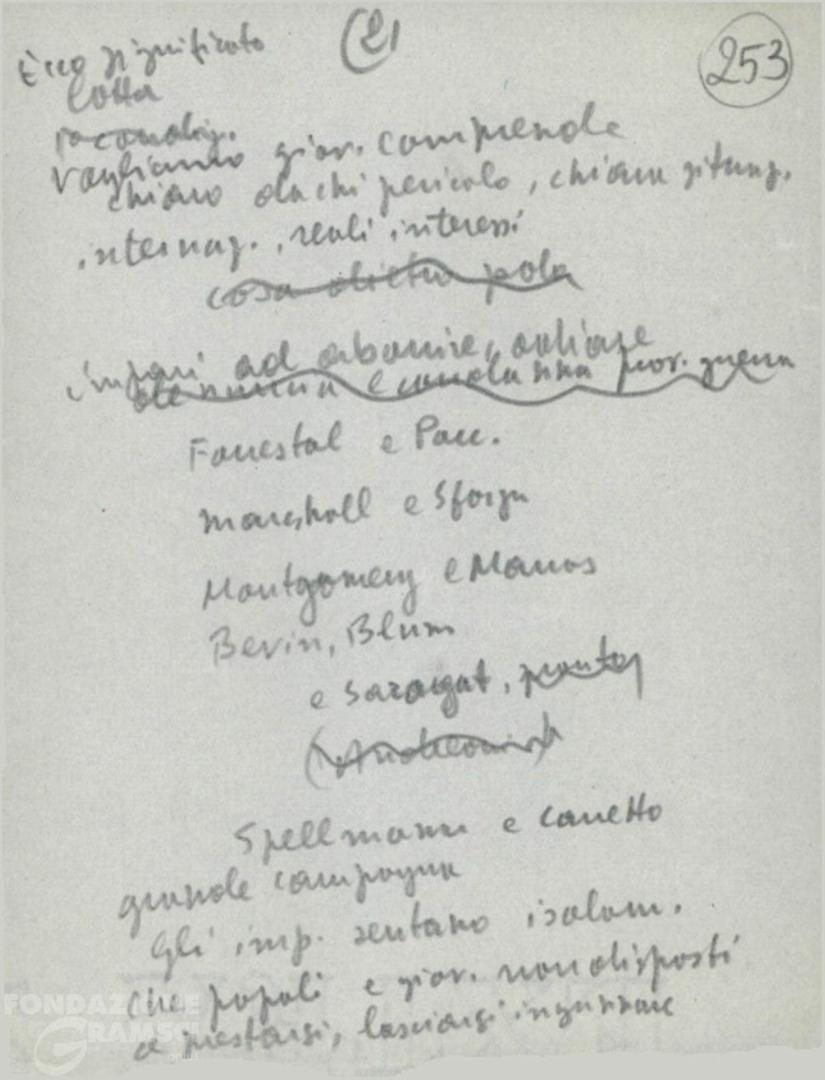 21
253
Ecco significato
lotta
vogliamo giov. comprenda
chiaro da chi pericolo, chiara situaz.
internaz., reali interessi
cosa dietro
impari ad
guerra
Forrestal e Pacc.
Marshall e Sforza
Montgomery e Marras
Bevin, Blum
e Saragat,
Spellmann e Canetto
grande campagna
Gli imp. sentano isolam.
che popoli e giov. non disposti
a prestarsi, lasciarsi ingannare
FONDAZIONE
GRAMSCI